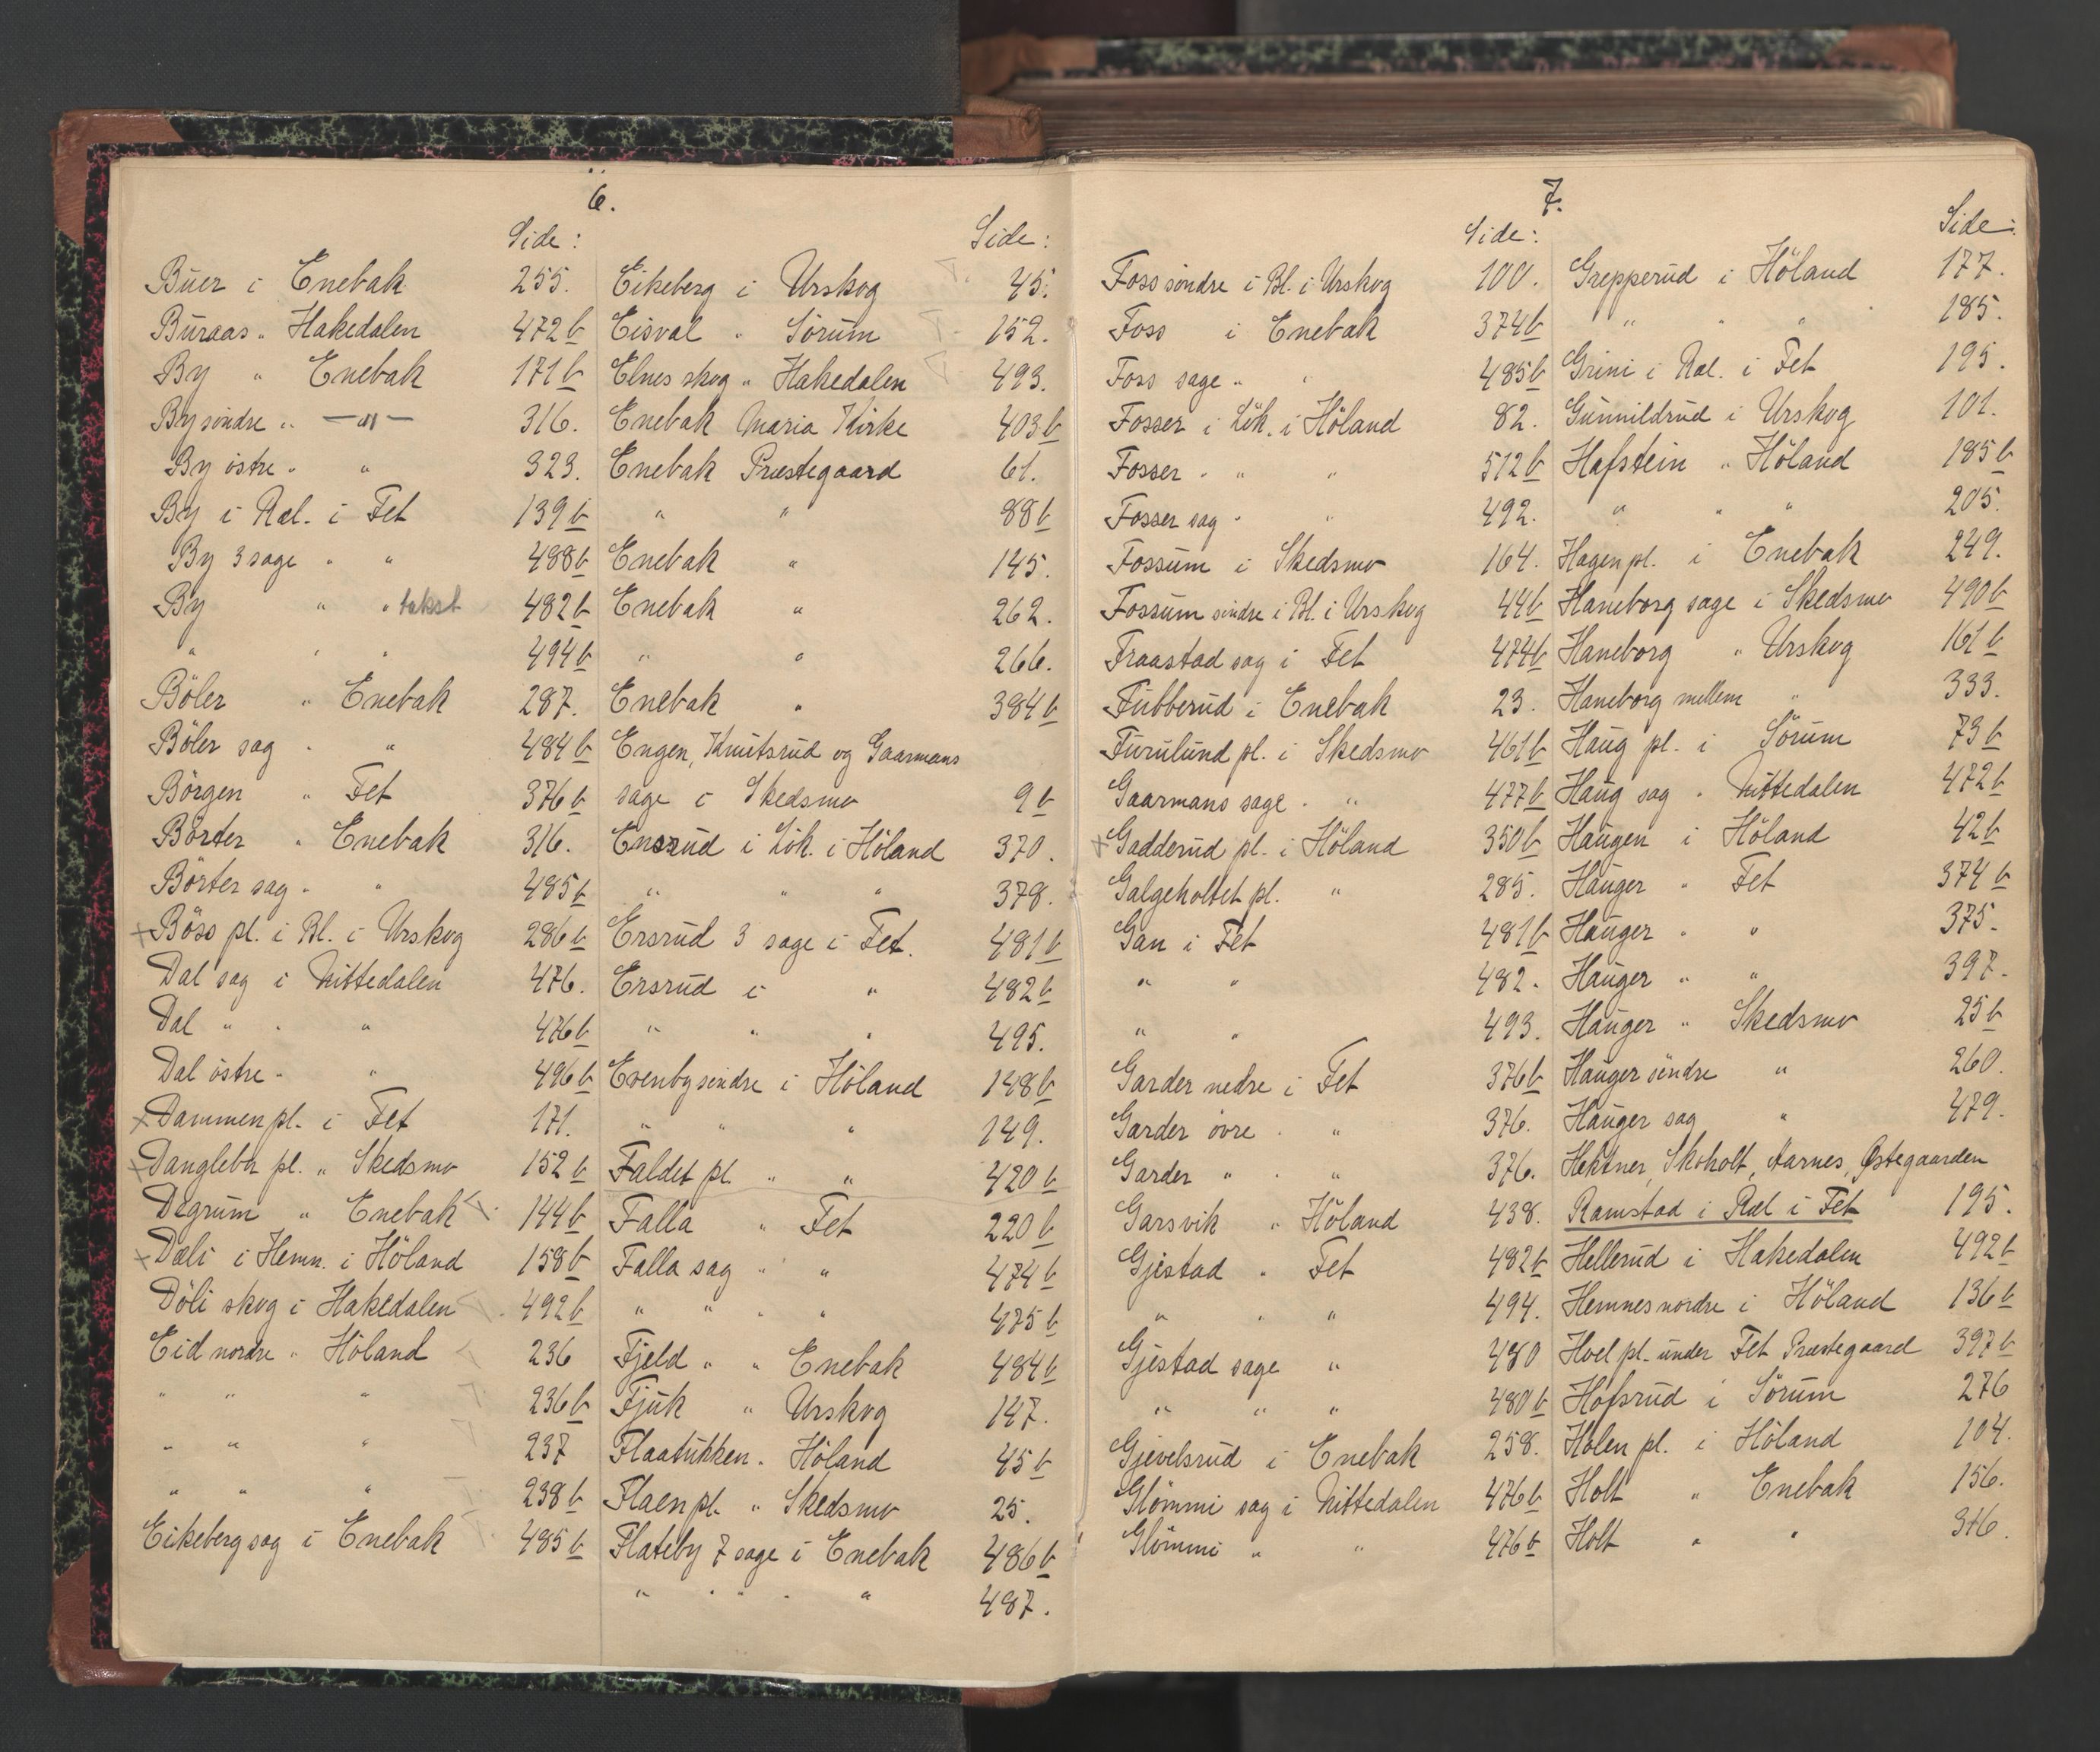 6.
Side:
Buer i Enebak 255.
Buraas " Hakedalen 472b
By " Enebak 171b
By söndre " —"— 316.
By östre " " 323.
By i Ræl. i Fet 139b
By 3 sage " " 488b
By " " takst 482b
" " " 494b
Böler " Enebak 287.
Böler sag " " 484b
Börgen " Fet 376b
Börter " Enebak 316.
Börter sag " " 485b
+ Böss pl. i Bl. i Urskog 286b
Dal sag i Nittedalen 476.
Dal " " " 476b
Dal östre " " 496b
x Dammen pl. i Fet 171.
x Dangleba pl. " Skedsmo 152b
Degrum " Enebak 144b
x Dæli i Hemn. i Höland 158b
Döli skog i Hakedalen 492b
Eid nordre " Höland 236
" " " 236b
" " " 237
" " " 238b
Eikeberg sag i Enebak 485b
Side:
Eikeberg i Urskog 45.
Eisval " Sörum 152.
Elnes skog " Hakedalen 493.
Enebak Maria Kirke 403b
Enebak Præstegaard 61.
" " 88b
Enebak " 145.
Enebak " 262.
" " 266.
Enebak " 384b
Engen, Knutsrud og Gaarmans
sage i Skedsmo 9b
Ensrud i Lök. i Höland 370.
" " " 378.
Ersrud 3 sage i Fet. 481b
Ersrud i " 482b
" " " 495.
Evenby söndre i Höland 148b
" " " 149.
Faldet pl. " " 420b
Falla " Fet 220b
Falla sag " " 474b
" " " " 475b
Fjeld " " Enebak 484b
Fjuk " Urskog 147.
Flaatukken " Höland 45b
Flaen pl. " Skedsmo 25.
Flateby 7 sage i Enebak 486b
" " " " " 487.
7.
Side:
Foss söndre i Bl. i Urskog 100.
Foss i Enebak 374b
Foss sage " " 485b
Fosser i Lök. i Höland 82.
Fosser " " " 512b
Fosser sag " " 492.
Fossum i Skedsmo 164.
Fossum söndre i Bl. i Urskog 44b
Fraastad sag i Fet 474b
Fubberud i Enebak 23.
Furulund pl. i Skedsmo 461b
Gaarmans sage " " 477b
x Gadderud pl. i Höland 350b
Galgeholtet pl. " 285.
Gan i Fet 481b
" " 482.
" " 493.
Garder nedre i Fet 376b
Garder övre " " 376.
Garder " " " 376.
Garsvik " Höland 438.
Gjestad " Fet 482b
" " " 494.
Gjestad sage " 480
" " " 480b
Gjevelsrud i Enebak 258.
Glömmi sag i Nittedalen 476b
Glömmi " " 476b
Side:
Grepperud i Höland 177.
" " " 185.
Grini i Ræl. i Fet 195.
Gunnildrud i Urskog 101.
Hafstein " Höland 185b
" " " 205.
Hagen pl. i Enebak 249.
Haneborg sage i Skedsmo 490b
Haneborg " Urskog 161b
Haneborg mellem " 333.
Haug pl. i Sörum 73b
Haug sag " Nittedalen 472b
Haugen i Höland 42b
Hauger " Fet 374b
Hauger " " 375.
Hauger " " 397.
Hauger " Skedsmo 25b
Hauger söndre " 260.
Hauger sag " 479.
Hektner, Skoholt, Aarnes, Østegaarden
Ramstad i Ræl i Fet 195.
Hellerud i Hakedalen 492b
Hemnes nordre i Höland 136b
Hoel pl. under Fet Præstegaard 397b
Hofsrud i Sörum 276
Holen pl. i Höland 104.
Holt " Enebak 156.
Holt " " 316.